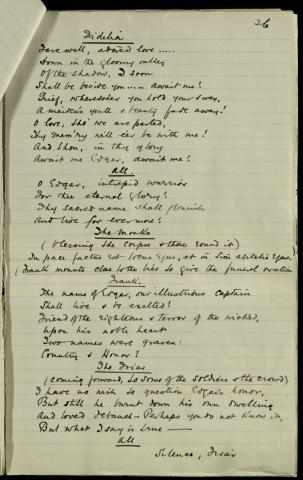 26
Fidelia
Farewell, adored love .....
Down in the gloomy valley
Of the shadow, I soon
Shall be beside you .... await me!
Grief, wheresoever you hold your sway,
A maiden's youth & beauty fade away!
O love, tho' we are parted,
Thy mem'ry will e'er be with me!
And thou, in thy glory
Await me Edgar, await me!
All.
O Edgar, intrepid warrior
For thee eternal glory!
Thy sacred name shall flourish
And live for evermore!
The Monks
(blessing the corpse & those round it)
In pace factus est locus ejus, et in Sion abitatio ejus.
(Frank mounts close to the bier to give the funeral oration
Frank.
The name of Edgar, our illustrious captain
Shall live & be exalted!
Friend of the righteous & terror of the wicked,
Upon his noble heart
Two names were graven:
Country & Honor!
The Friar
(coming forward, to some of the soldiers & the crowd)
I have no wish to question Edgar's honor,
But still he burnt down his own dwelling
And loved debauch — Perhaps you do not know it,
But what I say is true —
All
Silence, Friar